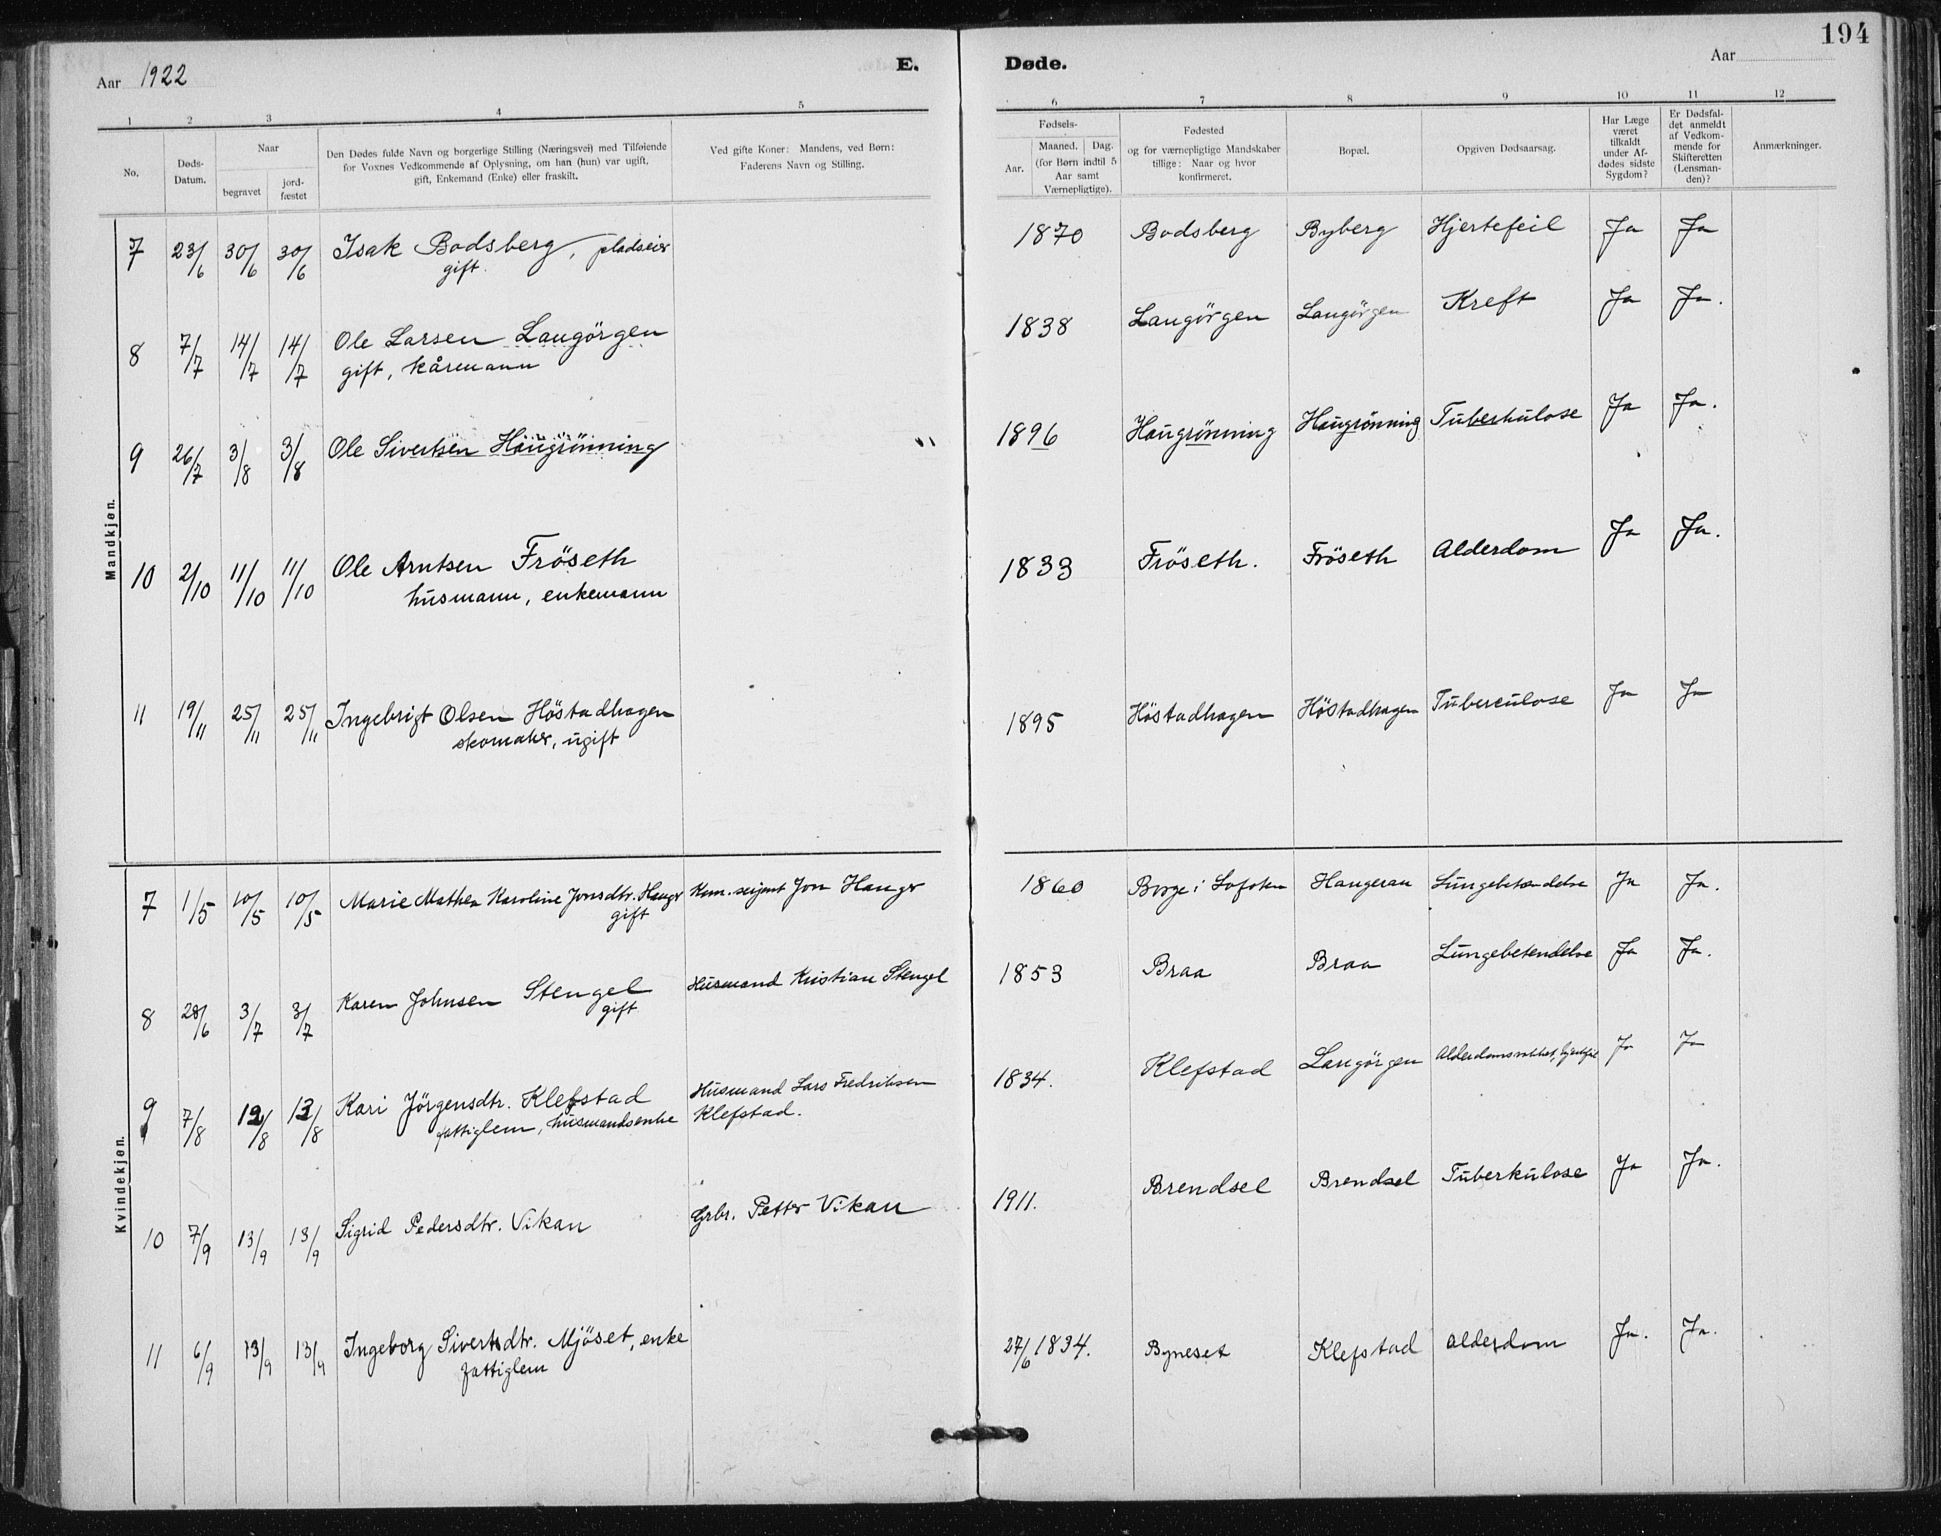 194
Aar 1922
E.
Døde.
Aar
1 2 3 4 5 6 7 8 9 10 11 12
No.
Døds-
Datum.
Naar
begravet
jord-
fæstet
Den Dødes fulde Navn og borgerlige Stilling (Næringsvei) med Tilføiende
for Voxnes Vedkommende af Oplysning, om han (hun) var ugift,
gift, Enkemand (Enke) eller fraskilt.
Ved gifte Koner: Mandens, ved Børn:
Faderens Navn og Stilling.
Fødsels-
Aar.
Maaned. Dag.
(for Børn indtil 5
Aar samt
Værnepligtige).
Fødested
og for værnepligtige Mandskaber
tillige: Naar og hvor
konfirmeret.
Bopæl.
Opgiven Dødsaarsag.
Har Læge
været
tilkaldt
under Af-
dødes sidste
Sygdom?
Er Dødsfal-
det anmeldt
af Vedkom-
mende for
Skifteretten
(Lensman-
den)?
Anmærkninger.
Mandkjøn.
7 23/6 30/6 30/6 Isak Bodsberg, pladseier 1870 Bodsberg Byberg Hjertefeil Ja Ja
gift.
8 7/7 14/7 14/7 Ole Larsen Langörgen 1838 Langörgen Langörgen Kreft Ja Ja.
gift, kårmann
9 26/7 3/8 3/8 Ole Sivertsen Haugrönning 1896 Haugrönning Haugrönning Tuberkulose Ja Ja.
10 2/10 11/10 11/10 Ole Arntsen Fröseth 1833 Fröseth. Fröseth Alderdom Ja Ja.
husmann, enkemann
11 19/11 25/11 25/11 Ingebrigt Olsen Höstadhagen 1895 Höstadhagen Höstadhagen Tuberculose Ja Ja
skomaker, ugift
Kvindekjøn.
7 1/5 10/5 10/5 Marie Mathea Karoline Jonsdtr. Hauger Kom. serjent Jon Hauger 1860 Borge i Lofoten Haugeran Lungebetændelse Ja Ja.
gift
8 28/6 3/7 3/7 Karen Johnsen Stengel Husmand Kristian Stengel 1853 Braa Braa Lungebetendelse Ja Ja.
gift
9 7/8 12/8 12/8 Kari Jörgensdtr. Klefstad Husmand Lars Fredriksen 1834. Klefstad Langörgen Ja Ja
fattiglem, husmandsenke Klefstad.
10 7/9 13/9 13/9 Sigrid Pedersdtr. Vikan Grbr. Petter Vikan 1911. Brendsel Brendsel Tuberkulose Ja Ja.
11 6/9 13/9 13/9 Ingeborg Sivertsdtr. Mjöset, enke 27/6 1834. Byneset Klefstad alderdom Ja. Ja.
fattiglem